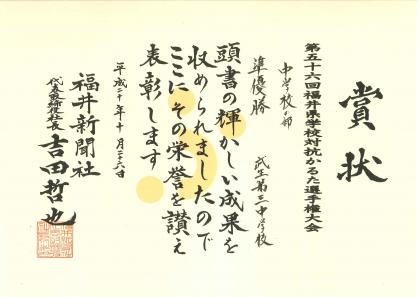 賞状
第五十六回福井県学校対抗かるた選手権大会
中学校の部
準優勝
武生第三中学校
頭書の輝かしい成果を
収められましたので
ここにその栄誉を讃え
表彰します
平成二十年十月二十六日
福井新聞社
代表取締役社長 吉田哲也